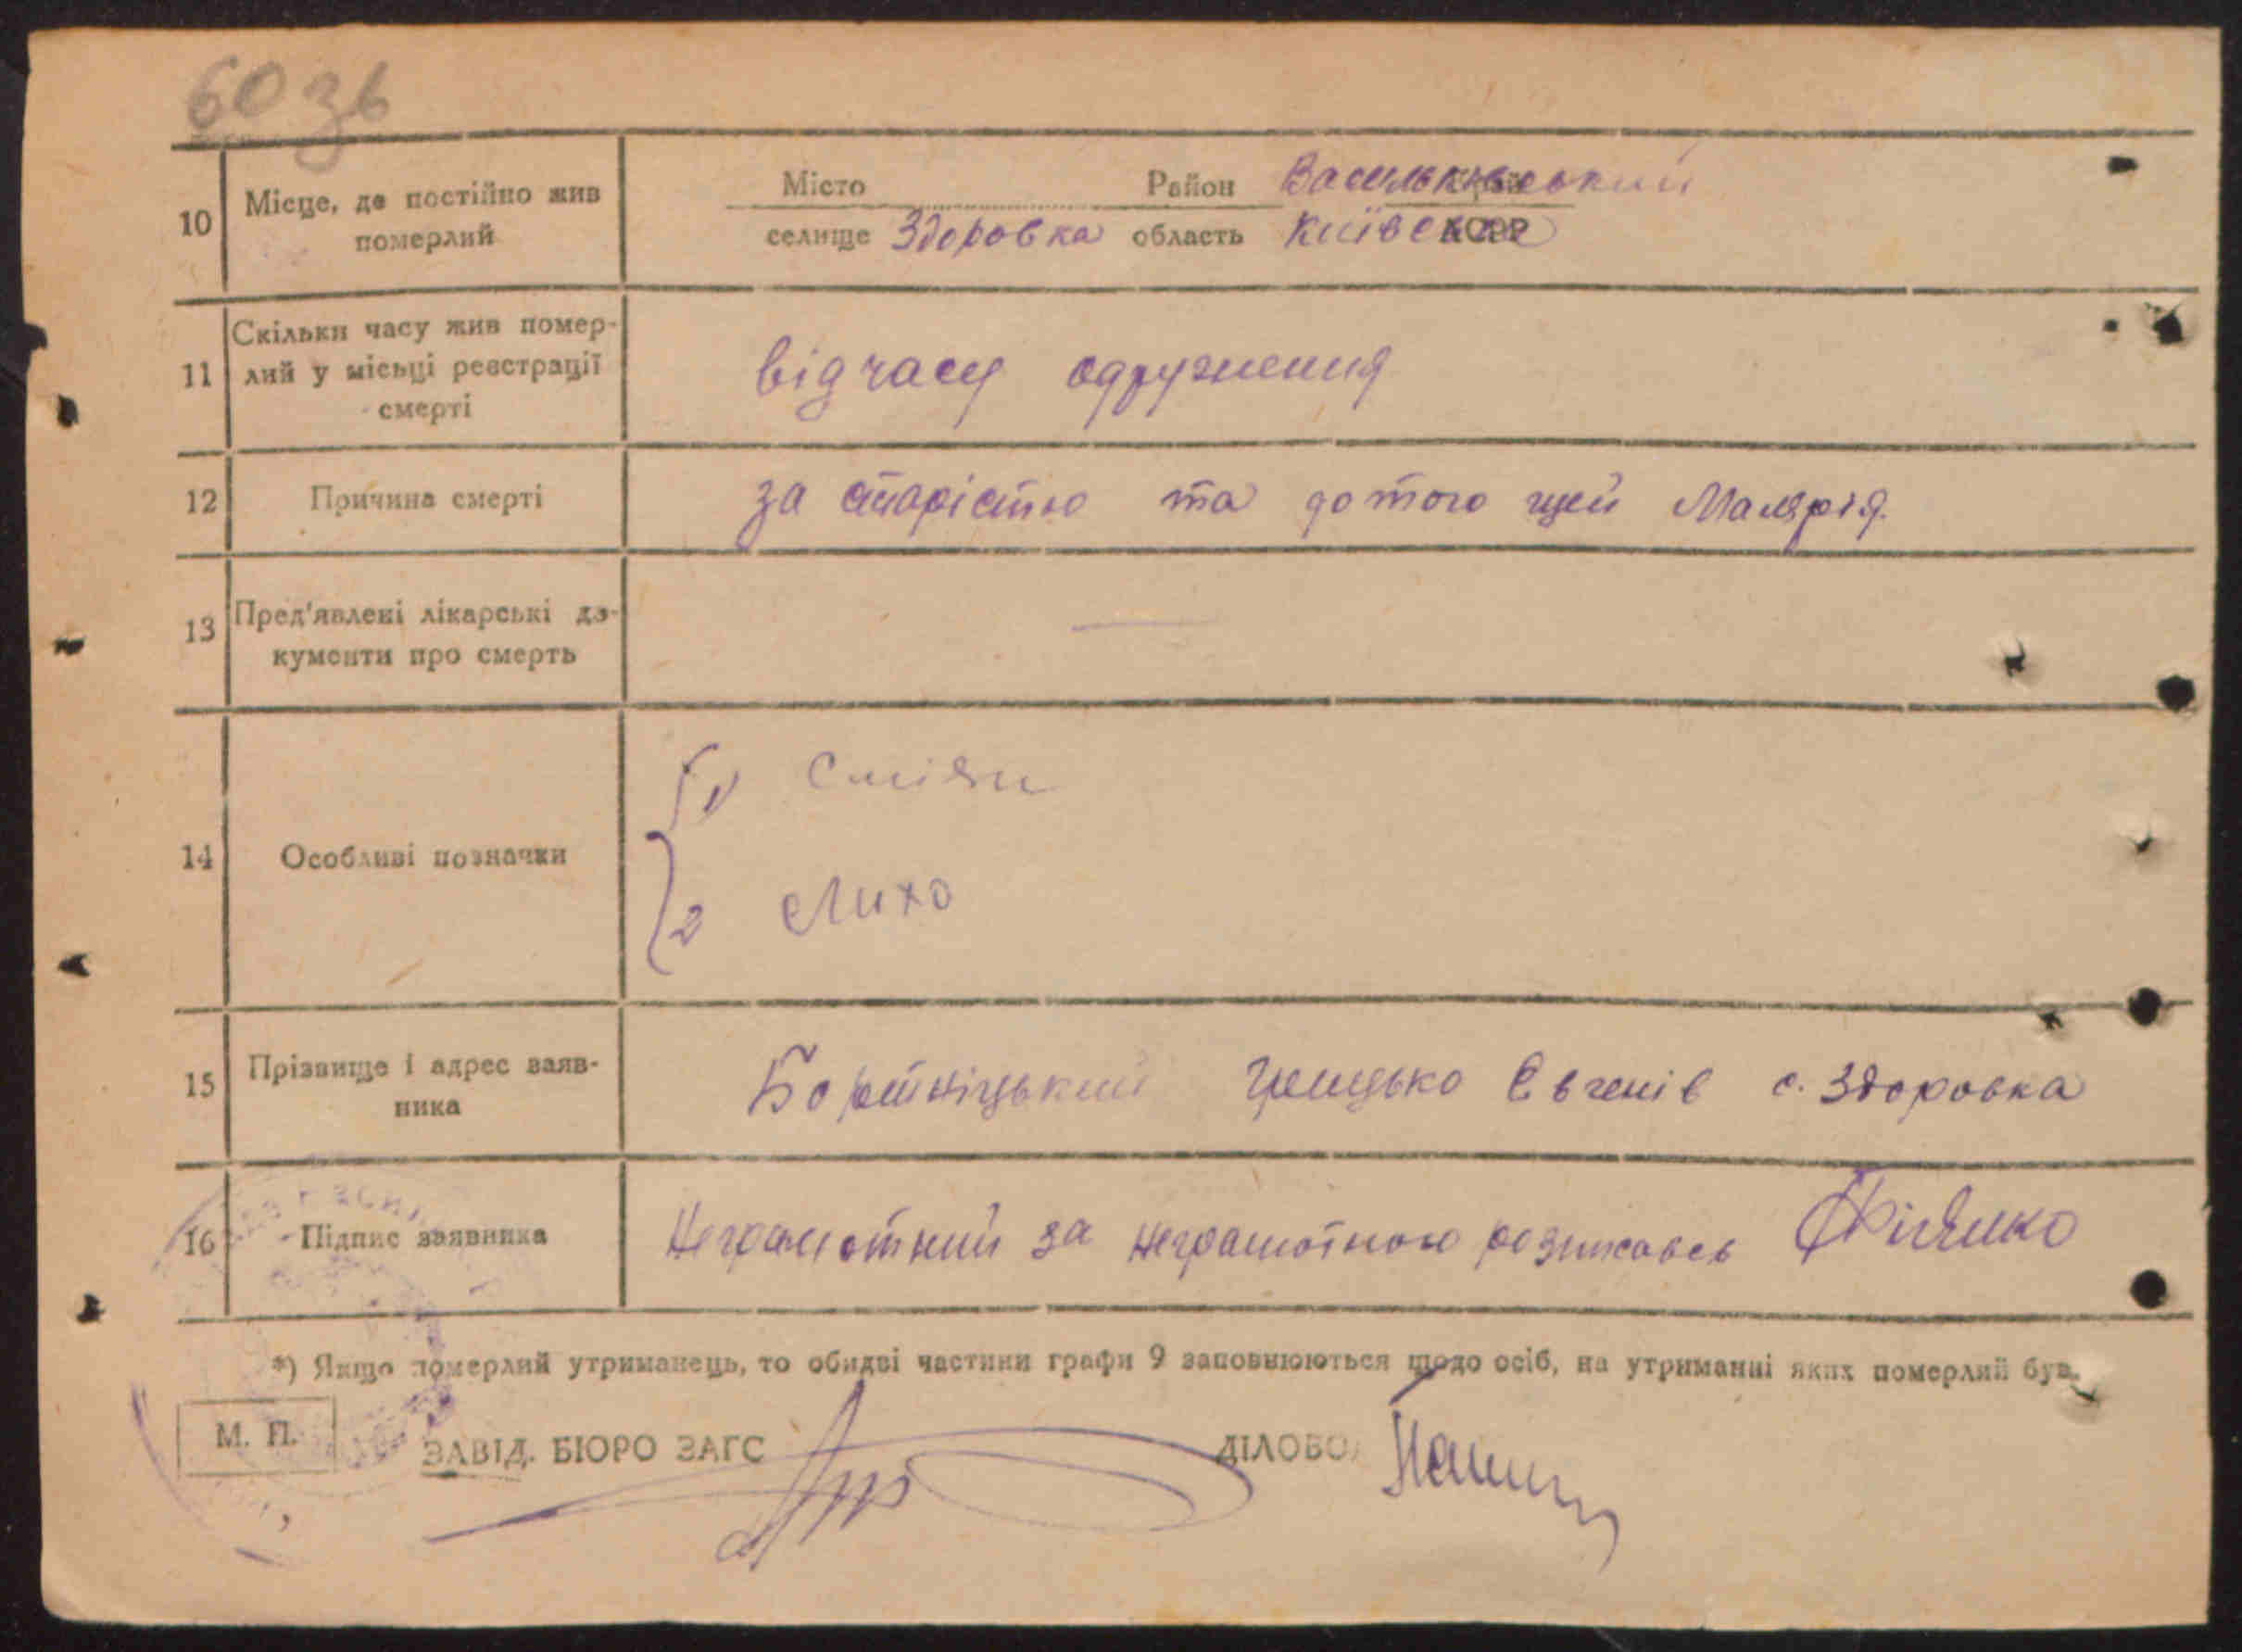 60 зв
10 Місце, де постійно жив померлий
Місто Район Васильківський
селище Здоровка область Київська
11 Скільки часу жив помер-
лий у місьці реєстрації
смерті
від часу одруження
12 Причина смерті
за старістю та до того щей Малярія.
13 Пред'явлені лікарські до-
кументи про смерть
—
14 Особливі позначки
1
2 Лихо
15 Прізвище і адрес заяв-
ника
Бортніцький Грицько Євгенів с. Здоровка
16 Підпис заявника
Неграмотний за неграмотного розписавсь
*) Якщо померлий утриманець, то обидві частини графи 9 заповнюються щодо осіб, на утриманні яких померлий був.
М. П.
ЗАВІД. БЮРО ЗАГС ДІЛОВО